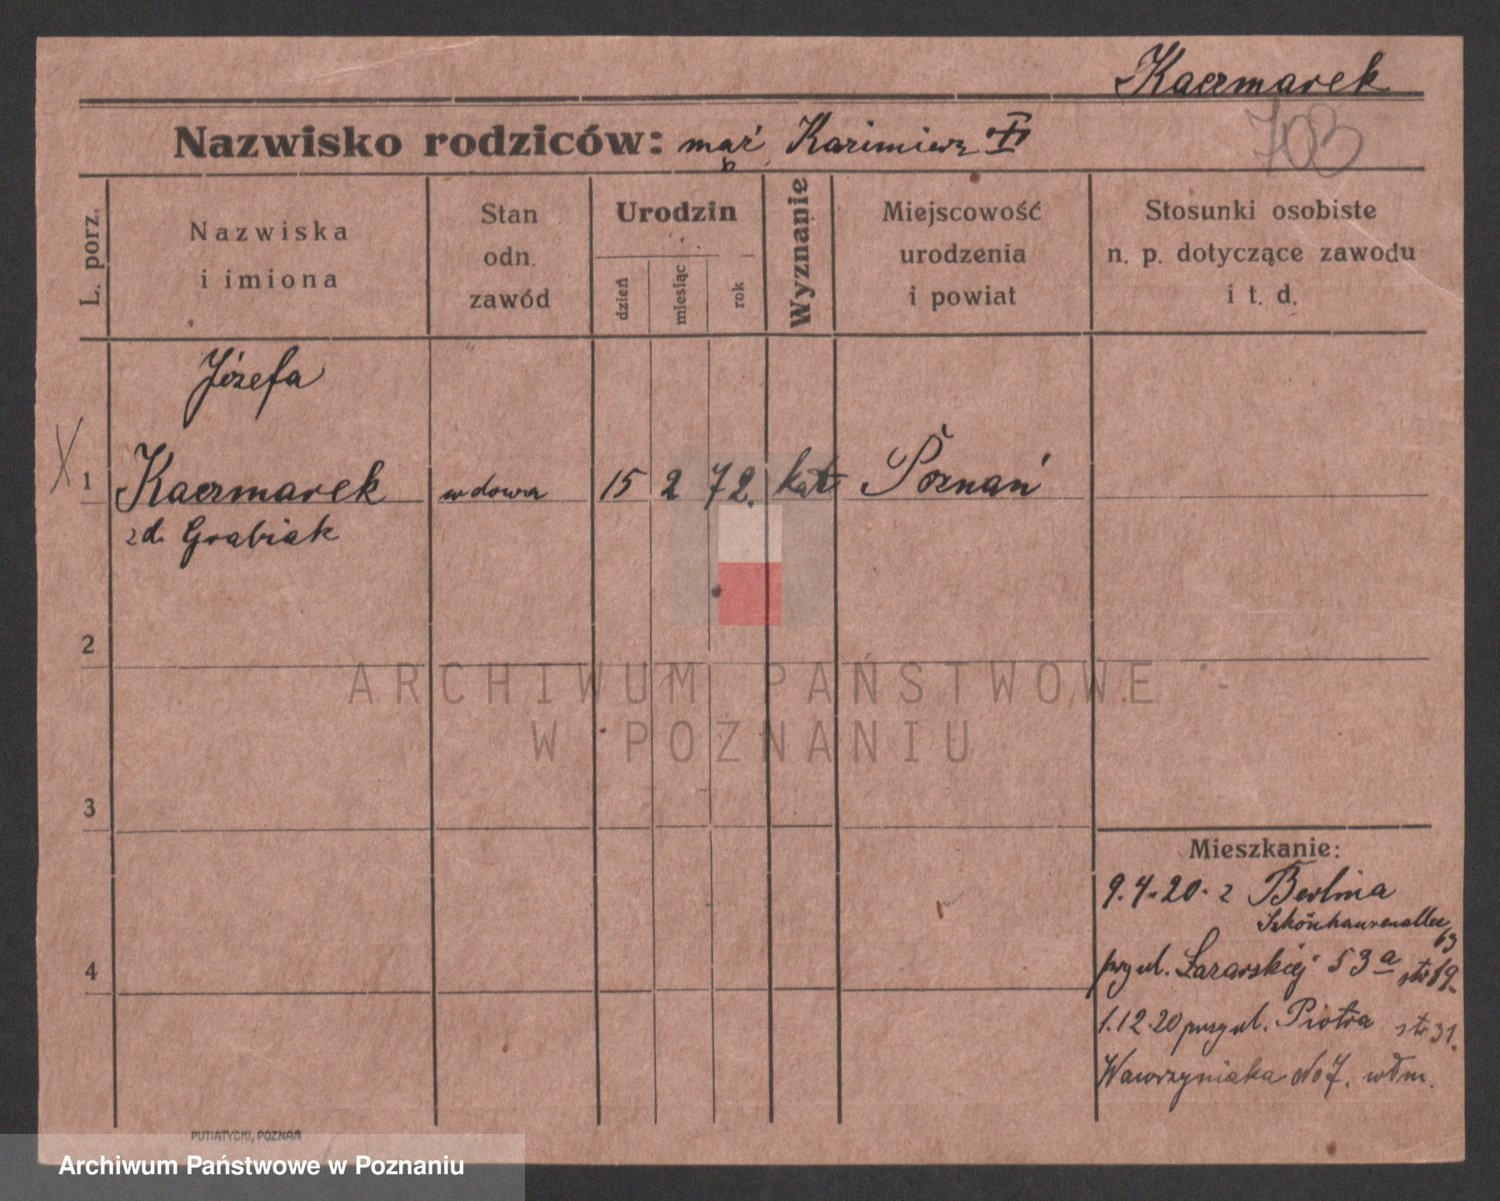 Kaczmarek
Nazwisko rodziców: mąż Kazimierz
703
L. porz.
Nazwiska
i imiona
Stan
odn.
zawód
Urodzin
dzień
miesiąc
rok
Wyznanie
Miejscowość
urodzenia
i powiat
Stosunki osobiste
n. p. dotyczące zawodu
i t. d.
Józefa
X 1 Kaczmarek wdowa 15 2 72. kat Poznań
zd. Grabiak
2
ARCHIWUM PAŃSTWOWE
W POZNANIU
3
Mieszkanie:
9.4.20. z Berlina
Schönhauserallee
63
przy ul. Łazarskiej 53a str 19.
4
1.12.20 przy ul. Piotra str 31.
Wawrzyniaka No 7. włm.
PUTIATYCKI, POZNAŃ
Archiwum Państwowe w Poznaniu